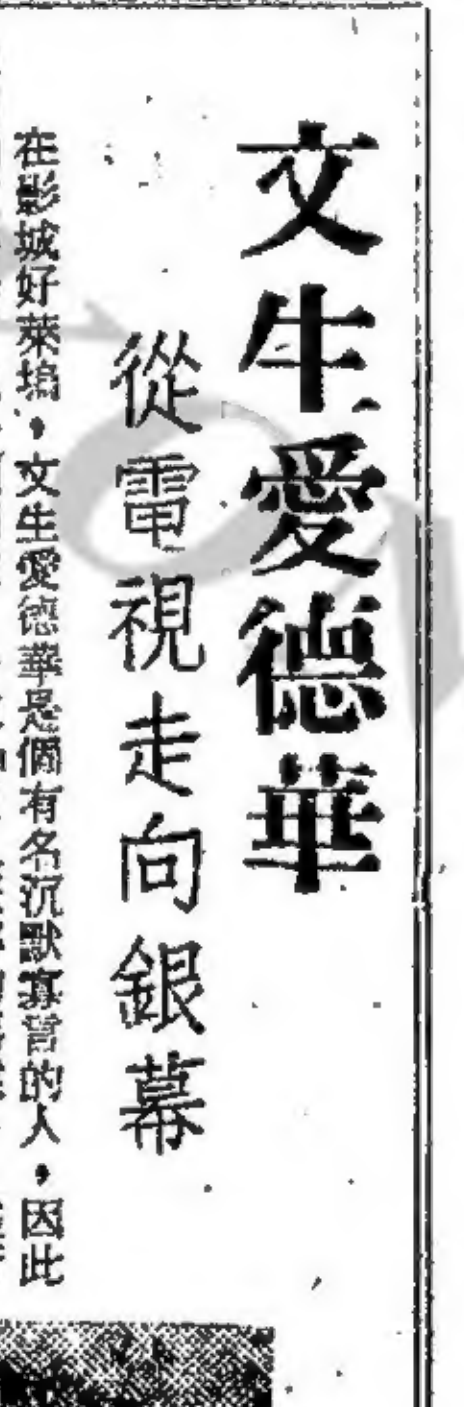 文生愛德華
從電視走向銀幕
在影城好萊塢，文生愛德華是個有名沉默寡言的人，因此